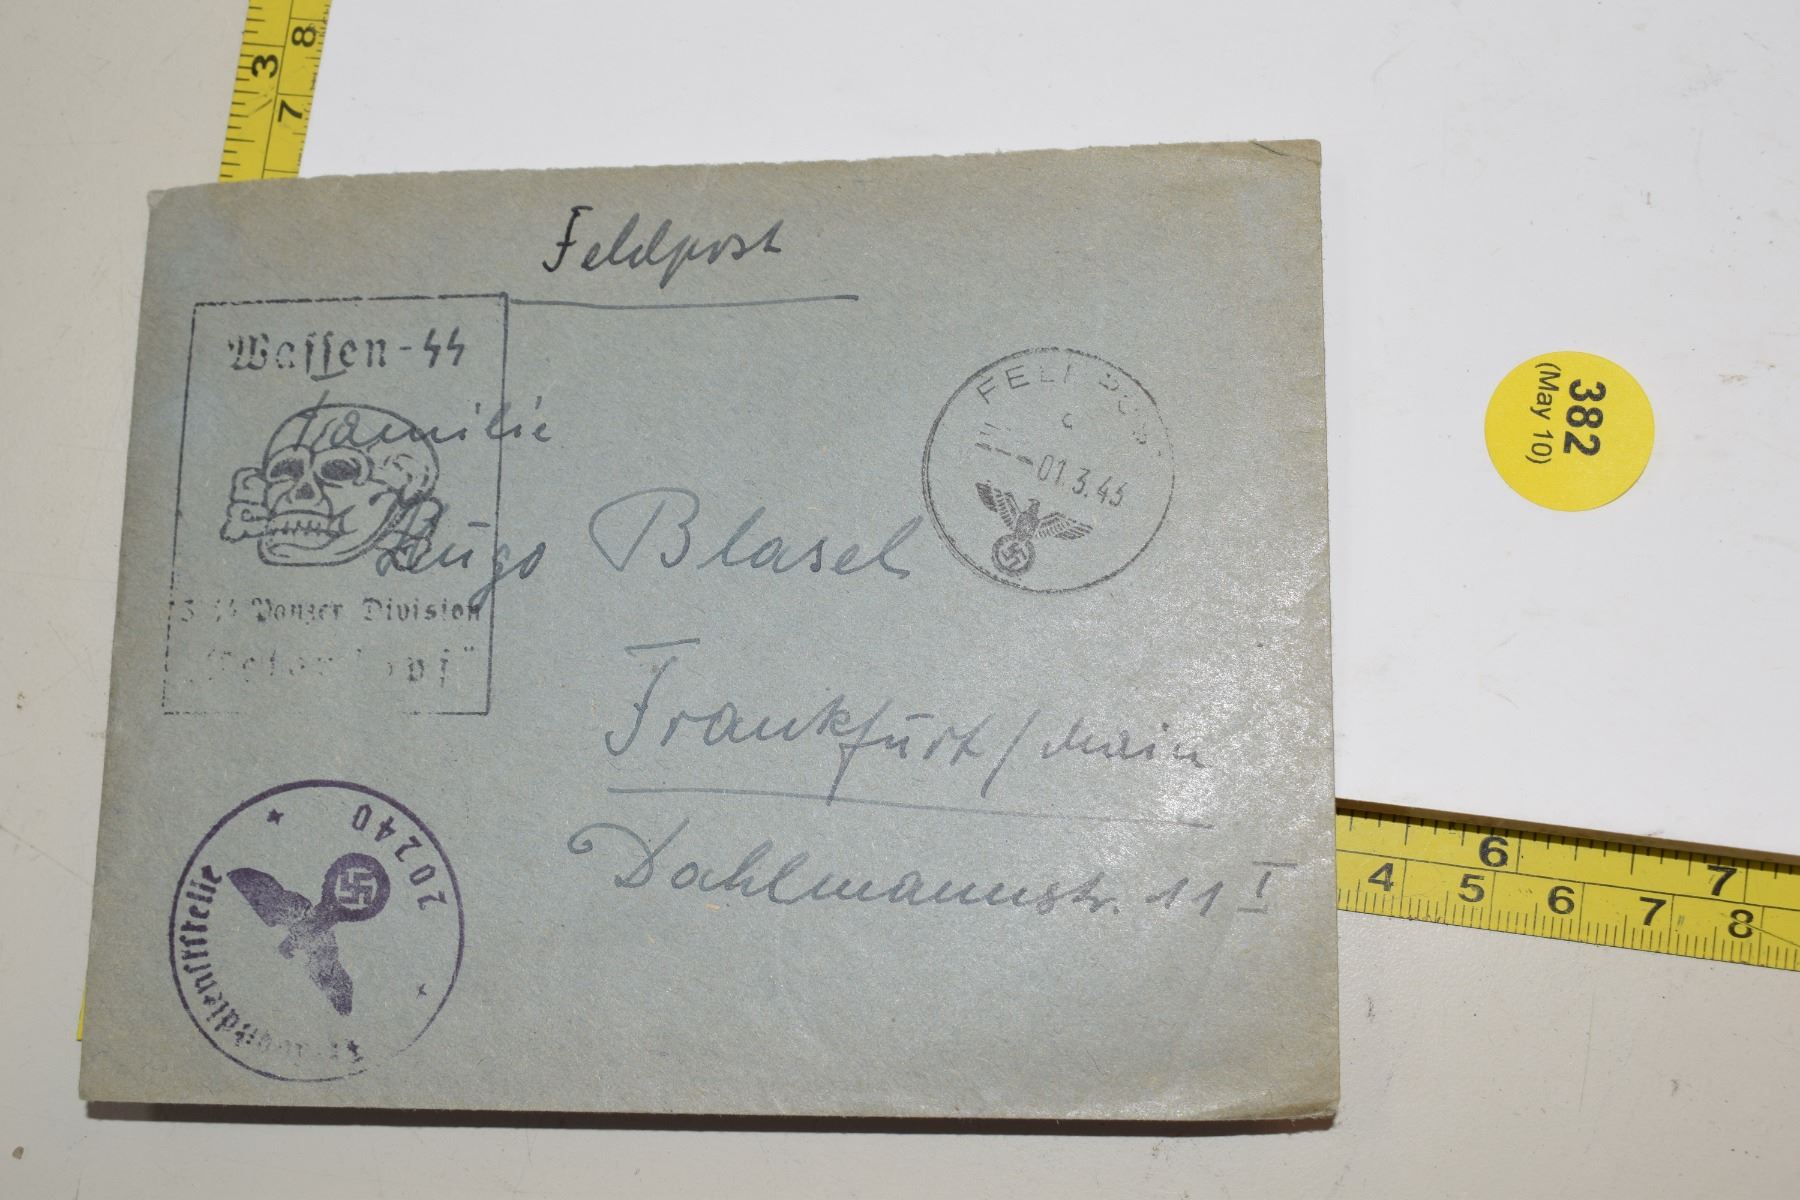 3 8 7
Feldpost
Waffen-SS
Familie
Hugo Blasel
Frankfurt/Main
Dahlmannstr. 11 I
Panzer Division
FELDPOST
c
---01.3.43
20240
382
(May 10)
6 7
4 5 6 7 8